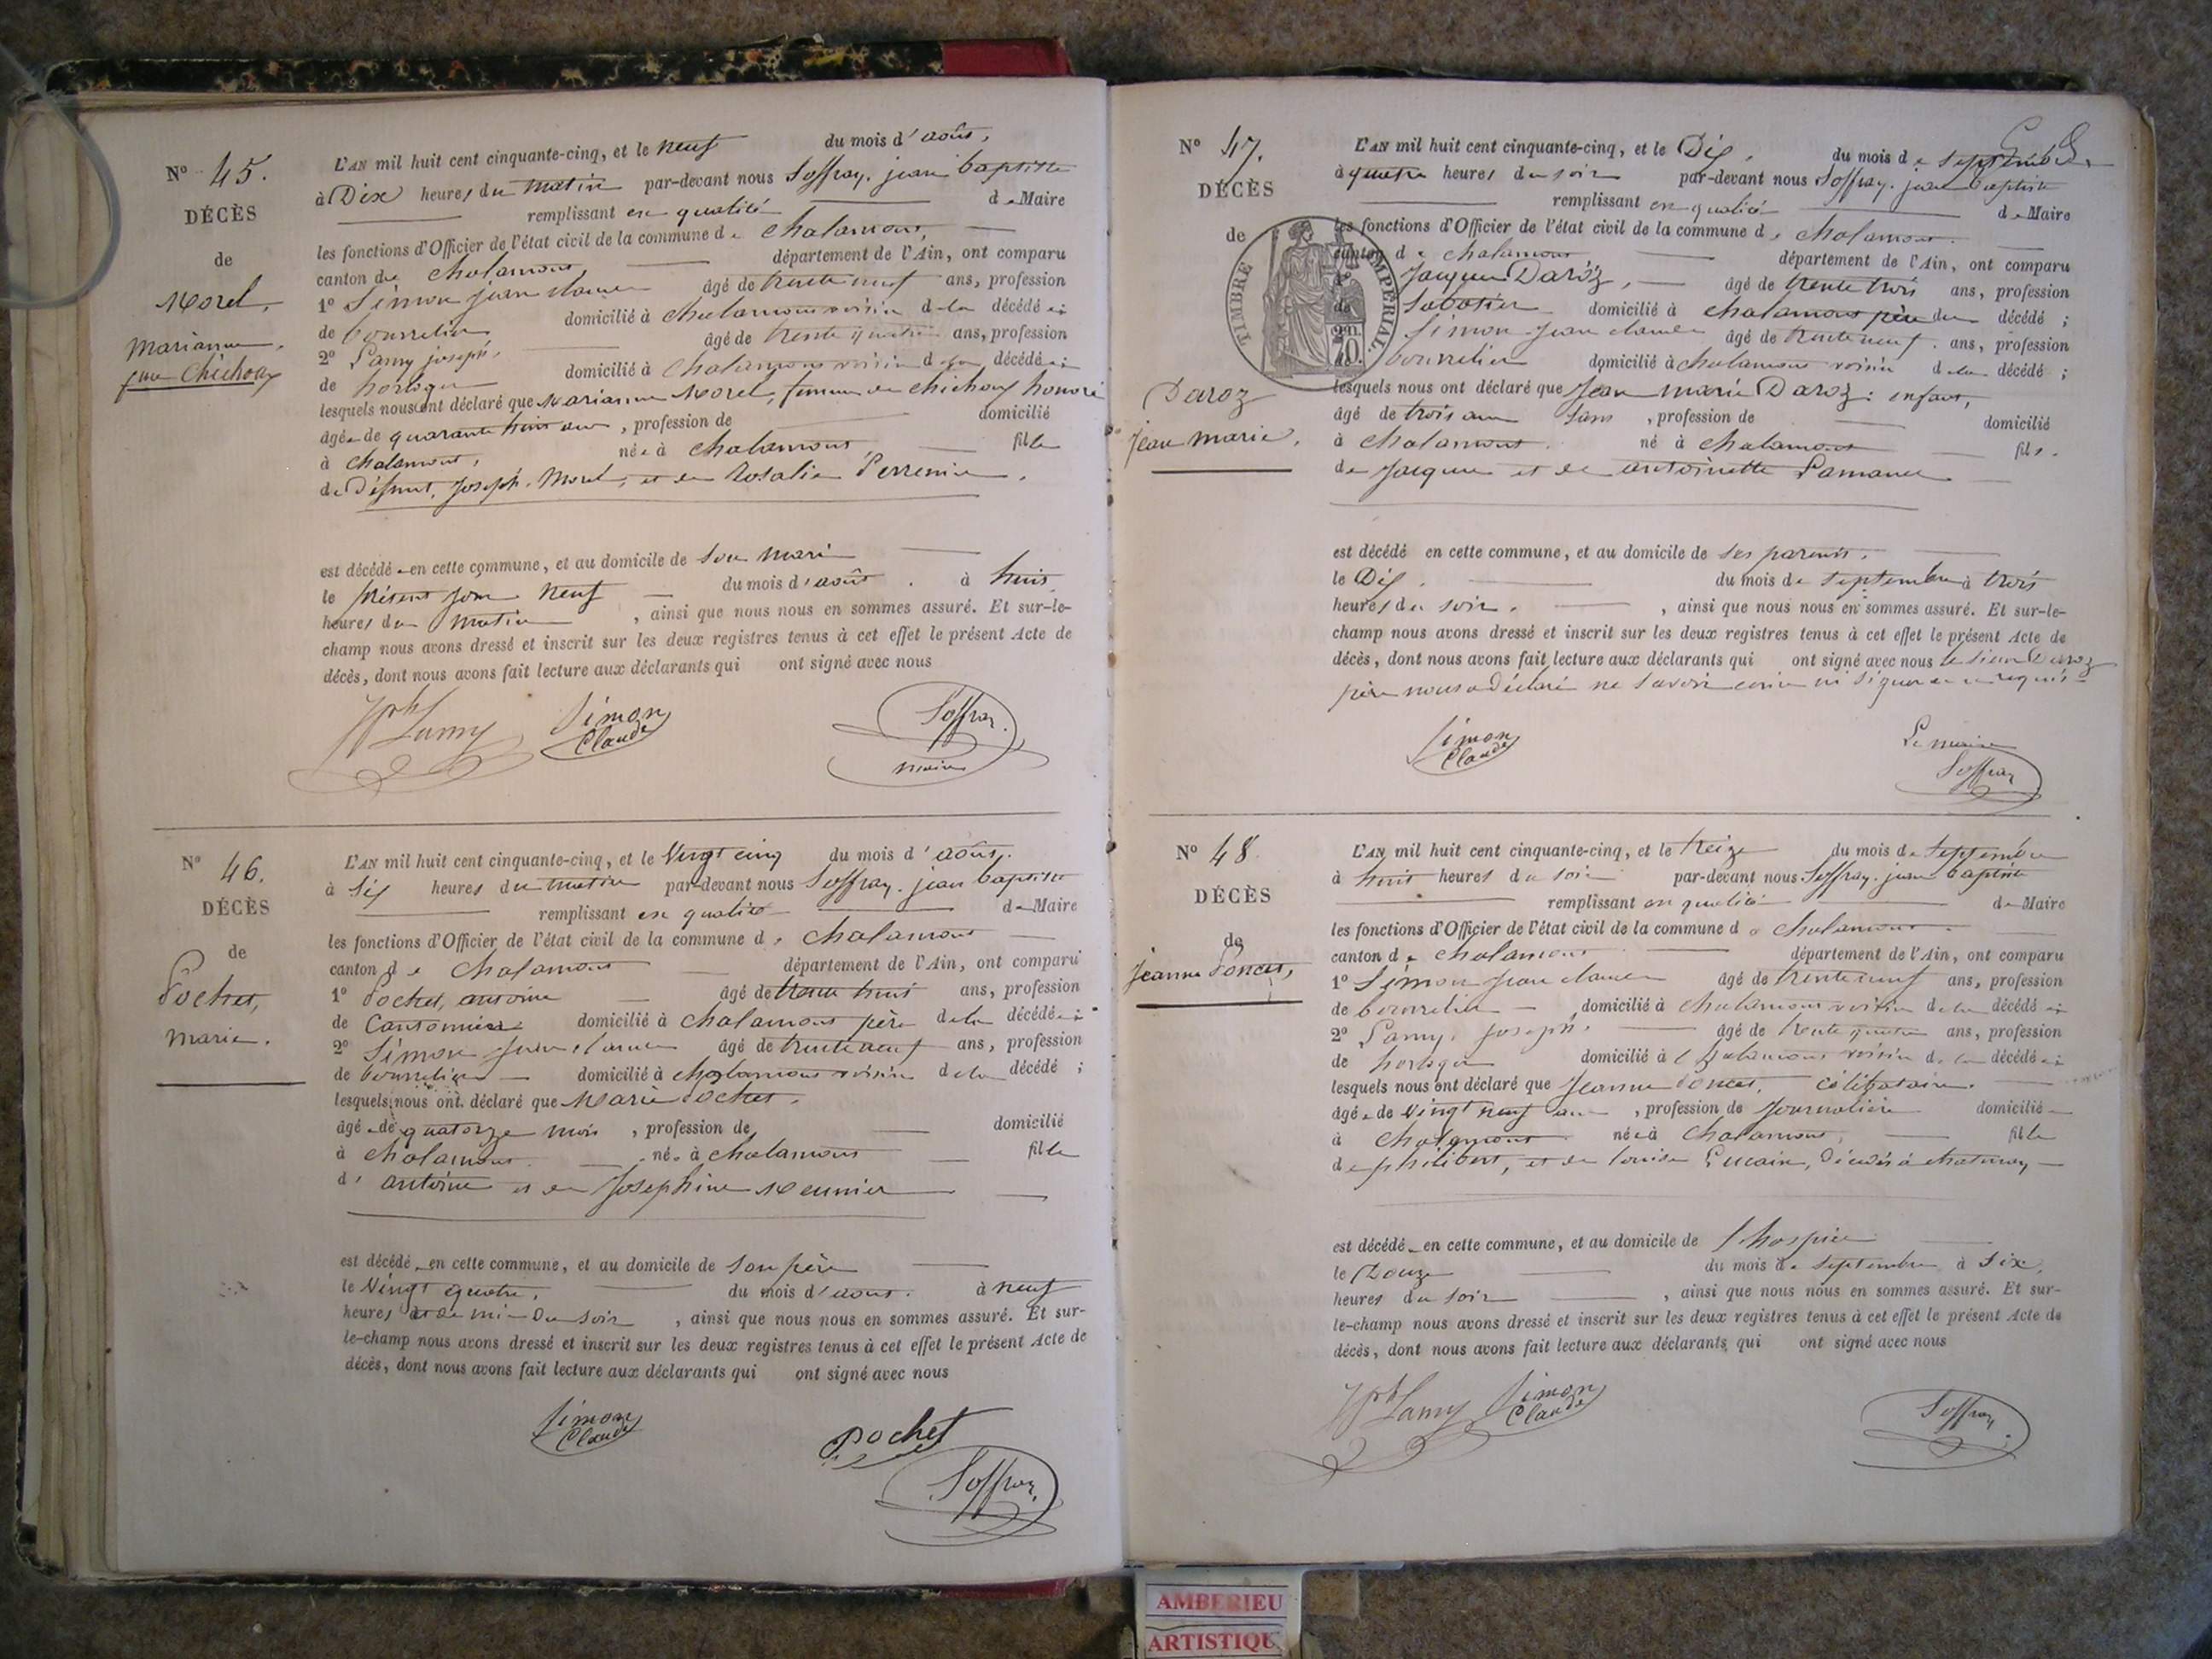 N° 45.
DÉCÈS
de
Morel,
Marianne,
fme Chichoux
L'AN mil huit cent cinquante-cinq, et le neuf du mois d'août,
à Dix heures du matin par-devant nous Soffray. jean baptiste
remplissant en qualité de Maire
les fonctions d'Officier de l'état civil de la commune de chalamont,
canton de chalamont, département de l'Ain, ont comparu
1° Simon jean claude âgé de trente neuf ans, profession
de bourrelier domicilié à chalamont voisin de la décédée;
2° Lamy joseph, âgé de trente quatre ans, profession
de horloger domicilié à chalamont voisin de la décédée;
lesquels nous ont déclaré que Marianne Morel, femme de chichoux honoré
âgée de quarante huit ans, profession de domicilié
à chalamont, née à chalamont fille
de Défunt, Joseph Morel, et de Rosalie Perrenin.
est décédée en cette commune, et au domicile de son mari
le présent jour neuf du mois d'août. à huit
heures du matin, ainsi que nous nous en sommes assuré. Et sur-le-
champ nous avons dressé et inscrit sur les deux registres tenus à cet effet le présent Acte de
décès, dont nous avons fait lecture aux déclarants qui ont signé avec nous
Jph Lamy Simon Claude Soffray maire
N° 46.
DÉCÈS
de
Pochet,
marie.
L'AN mil huit cent cinquante-cinq, et le Vingt cinq du mois d'août,
à Six heures du matin par-devant nous Soffray. jean baptiste
remplissant en qualité de Maire
les fonctions d'Officier de l'état civil de la commune de chalamont
canton de chalamont département de l'Ain, ont comparu
1° Pochet, antoine âgé de trente huit ans, profession
de Cantonnier domicilié à chalamont père de la décédée;
2° Simon jean claude âgé de trente neuf ans, profession
de bourrelier domicilié à chalamont voisin de la décédé;
lesquels nous ont déclaré que Marie Pochet,
âgée de quatorze mois, profession de domicilié
à chalamont. née à chalamont fille
d'antoine et de Josephine Meunier
est décédée en cette commune, et au domicile de son père
le Vingt quatre, du mois d'aout. à neuf
heures et demie Du soir, ainsi que nous nous en sommes assuré. Et sur-
le-champ nous avons dressé et inscrit sur les deux registres tenus à cet effet le présent Acte de
décès, dont nous avons fait lecture aux déclarants qui ont signé avec nous
Simon Claude pochet
Soffray.
N° 47.
DÉCÈS
de
Daroz
Jean marie,
TIMBRE IMPERIAL
L'AN mil huit cent cinquante-cinq, et le Dix, du mois de septembre
à quatre heures du soir par-devant nous Soffray. jean baptiste
remplissant en qualité de Maire
les fonctions d'Officier de l'état civil de la commune de chalamont.
canton de chalamont département de l'Ain, ont comparu
1° Jacques Daroz, âgé de trente trois ans, profession
de Sabotier domicilié à chalamont père du décédé;
2° Simon Jean claude âgé de trente neuf. ans, profession
de bourrelier domicilié à chalamont voisin de la décédé;
lesquels nous ont déclaré que Jean marie Daroz: enfant,
âgé de trois ans, profession de domicilié
à chalamont. né à chalamont fils.
de Jacques et de antoinette
est décédé en cette commune, et au domicile de ses parents.
le Dix. du mois de septembre à trois
heures du soir., ainsi que nous nous en sommes assuré. Et sur-le-
champ nous avons dressé et inscrit sur les deux registres tenus à cet effet le présent Acte de
décès, dont nous avons fait lecture aux déclarants qui ont signé avec nous le sieur Daroz
père nous a déclaré ne savoir écrire ni signer de ce requis
Simon Claude Le maire
Soffray
N° 48.
DÉCÈS
de
Jeanne Poncet,
L'AN mil huit cent cinquante-cinq, et le treize du mois de septembre
à huit heures du soir par-devant nous Soffray. jean baptiste
remplissant en qualité de Maire
les fonctions d'Officier de l'état civil de la commune de chalamont.
canton de chalamont département de l'Ain, ont comparu
1° Simon Jean claude âgé de trente neuf ans, profession
de bourrelier domicilié à chalamont voisin de la décédée;
2° Lamy, joseph, âgé de trente quatre ans, profession
de horloger domicilié à chalamont voisin de la décédée;
lesquels nous ont déclaré que Jeanne Poncet, célibataire.
âgée de vingt neuf ans, profession de Journalière domiciliée
à chalamont née à chalamont, fille
de philibert, et de louise décédés à
est décédée en cette commune, et au domicile de l'hospice
le Douze du mois de septembre à Six,
heures du soir, ainsi que nous nous en sommes assuré. Et sur-
le-champ nous avons dressé et inscrit sur les deux registres tenus à cet effet le présent Acte de
décès, dont nous avons fait lecture aux déclarants qui ont signé avec nous
Jph Lamy Simon Claude Soffray.
AMBERIEU
ARTISTIQU